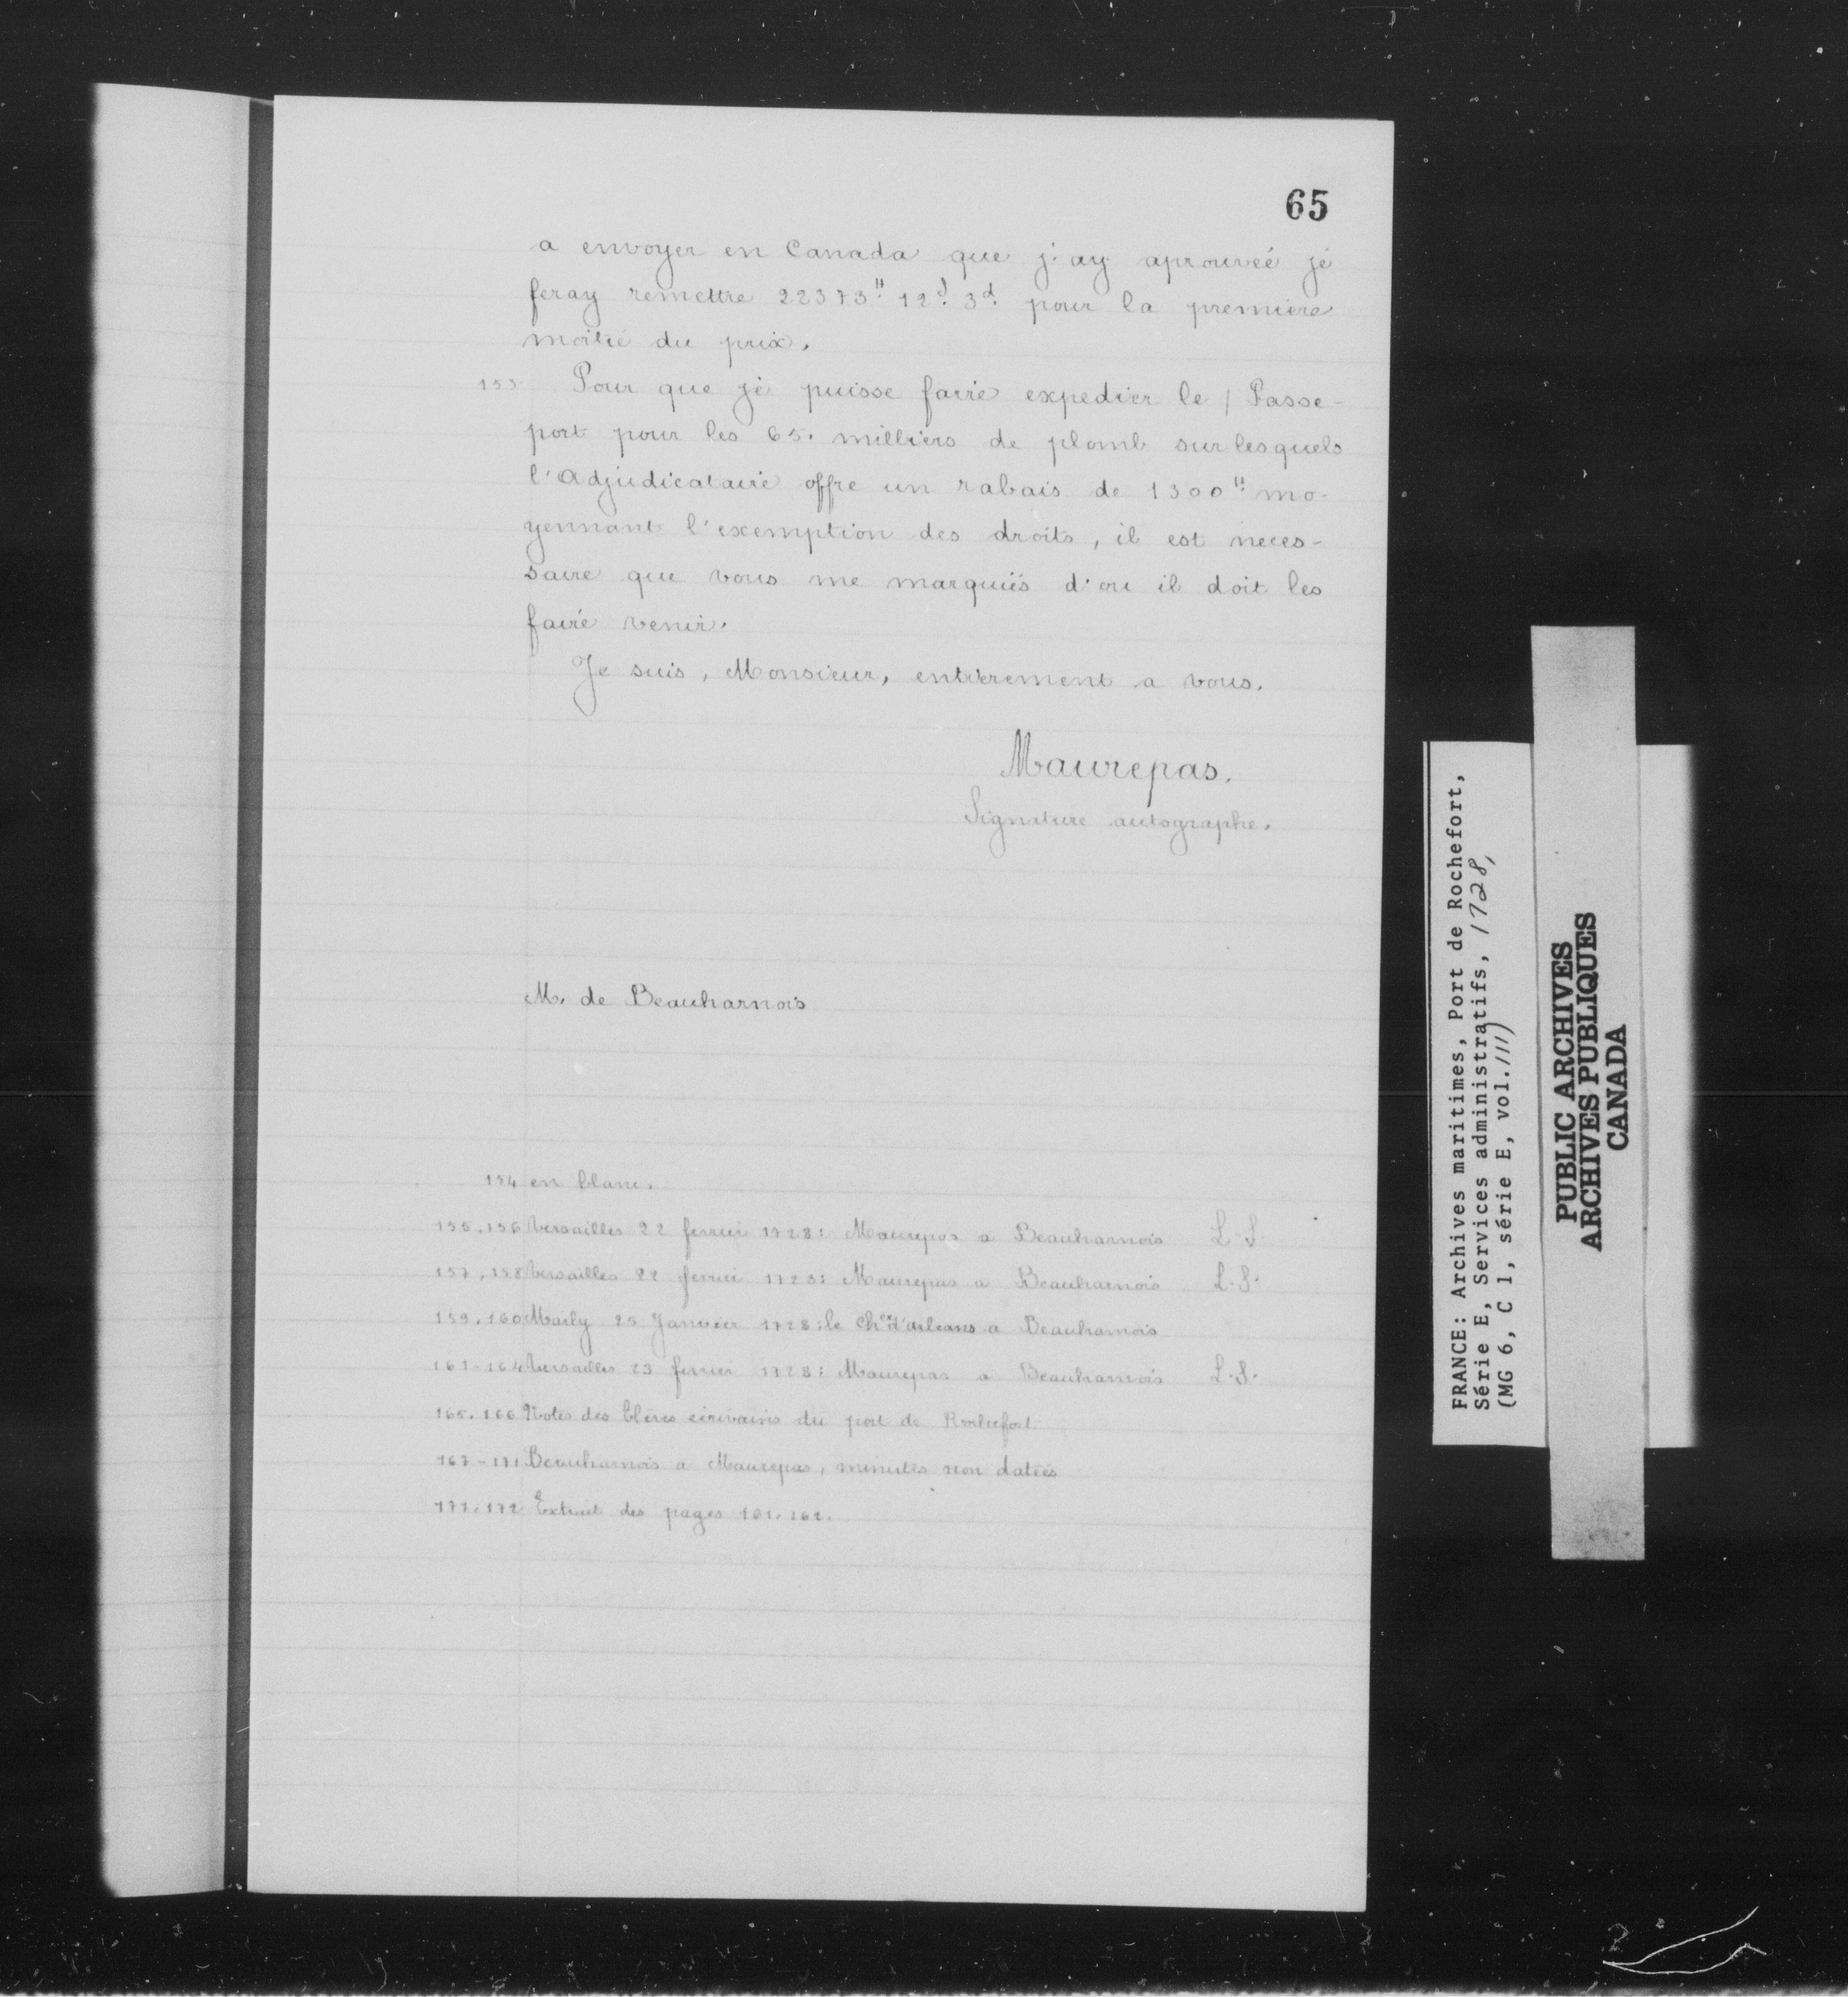 65
a envoyer en Canada que j'ay aprouvéé jé
feray remettre 22373ᵗᵗ 12ˢ 3ᵈ pour la premiere
moitié du prix.
153 Pour que jé puisse fairé expedier le / Passe-
port pour les 65. milliers de plomb sur lesquels
l'adjudicatairé offre un rabais de 1300ᵗᵗ mo-
yennant l'exemption des droits, il est neces-
saire que vous me marquiés d'ou il doit les
fairé venir.
Je suis, Monsieur, entierement a vous.
Maurepas.
Signature autographe.
M. de Beauharnois
154 en blanc.
155.156 Versailles 22 fevrier 1728: Maurepas a Beauharnois L.S
157.158 Versailles 22 fevrier 1728: Maurepas a Beauharnois L.S.
159.160 Marly 25 Janvier 1728: le Chᵉʳ d'orleans a Beauharnois
161-164 Versailles 23 fevrier 1728: Maurepas a Beauharnois L.S.
165.166 Notes des élèves écrivains du port de Rochefort
167-171 Beauharnois a Maurepas, minutes non datées
171.172 Extrait des pages 161.162.
FRANCE: Archives maritimes, Port de Rochefort,
Série E, Services administratifs, 1728,
(MG 6, C 1, série E, vol.111)
PUBLIC ARCHIVES
ARCHIVES PUBLIQUES
CANADA